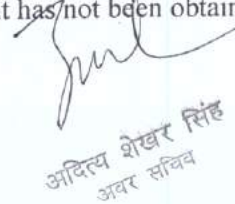 t has not been obtain
अदित्य शेखर सिंह
अवर सचिव